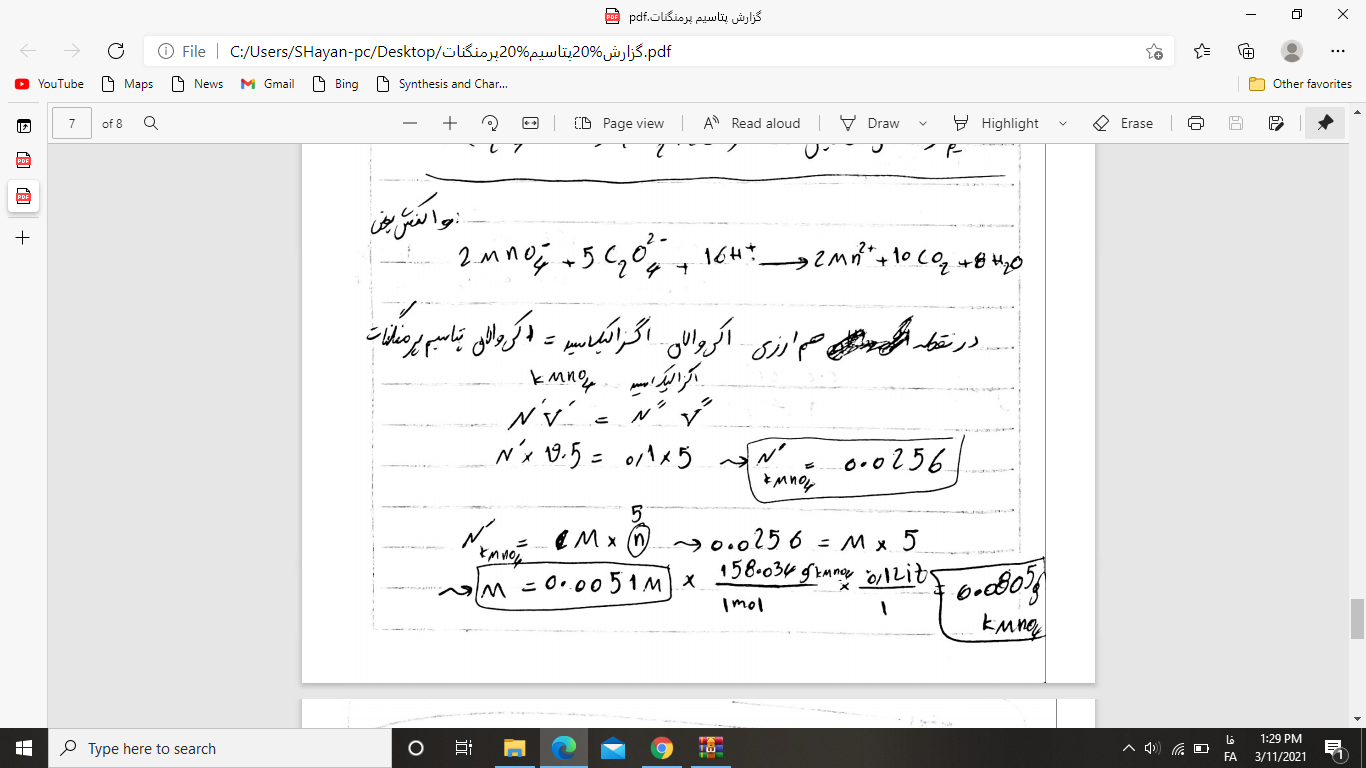 گزارش پتاسیم پرمنگنات.pdf
File C:/Users/SHayan-pc/Desktop/گزارش%20پتاسیم%20پرمنگنات.pdf
YouTube Maps News Gmail Bing Synthesis and Char... Other favorites
7 of 8 Page view Read aloud Draw Highlight Erase
واکنش یونی:
2 MnO₄⁻ + 5 C₂O₄²⁻ + 16H⁺ → 2Mn²⁺ + 10CO₂ + 8H₂O
در نقطه هم ارزی اکی والان اگزالیک اسید = اکی والان پتاسیم پرمنگنات
KMnO₄ اگزالیک اسید
N′V′ = N″ V″
N′ × 19.5 = 0,1 × 5 ⇝ N′ KMnO₄ = 0.0256
5
N′ KMnO₄ = M × n ⇝ 0.0256 = M × 5
⇝ M = 0.0051M × 158.034 g KMnO₄ / 1mol × 0,1Lit / 1 = 0.0805g KMnO₄
Type here to search
فا 1:29 PM
FA 3/11/2021 1